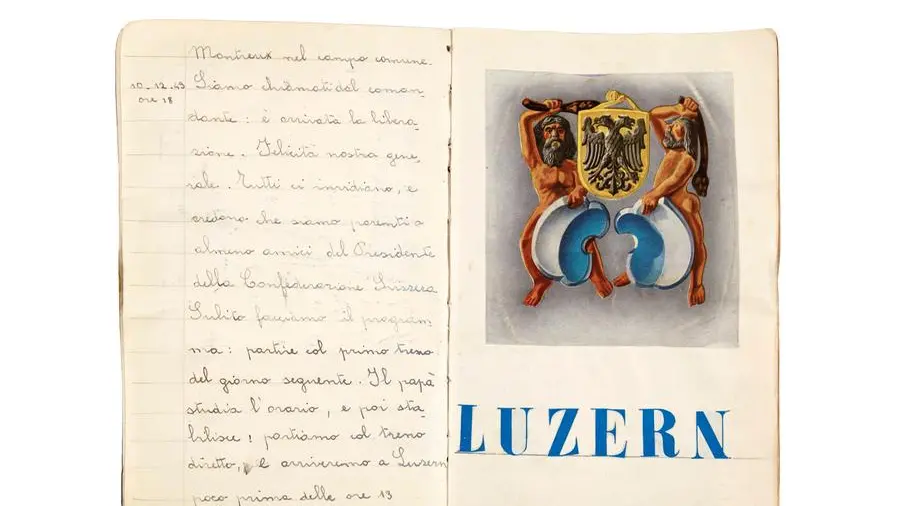 Montreux nel campo comune.
10-12-43
ore 18
Siamo chiamati dal coman-
dante: è arrivata la libera-
zione. Felicità nostra gene,
rale. Tutti ci invidiano, e
credono che siamo parenti o
almeno amici del Presidente
della Confederazione Svizzera
Subito facciamo il program-
ma: partire col primo treno
del giorno seguente. Il papà
studia l'orario, e poi sta-
bilisce: partiamo col treno
diretto, e arriveremo a Luzern
poco prima delle ore 13
LUZERN